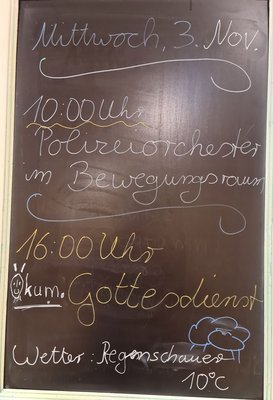 Mittwoch, 3. Nov.
10:00 Uhr
Polizeiorchester
im Bewegungsraum
16:00 Uhr
Ökum. Gottesdienst
Wetter: Regenschauer
10°C